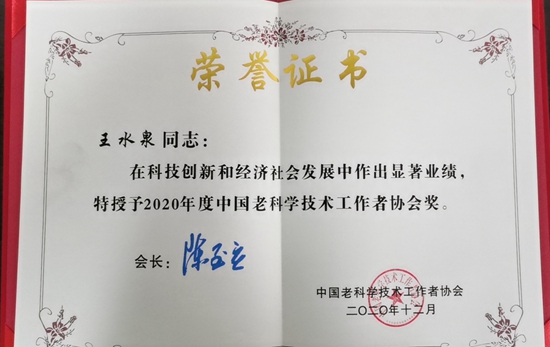 荣誉证书
王水泉同志：
在科技创新和经济社会发展中作出显著业绩，
特授予2020年度中国老科学技术工作者协会奖。
会长：陈至立
中国老科学技术工作者协会
二〇二〇年十二月